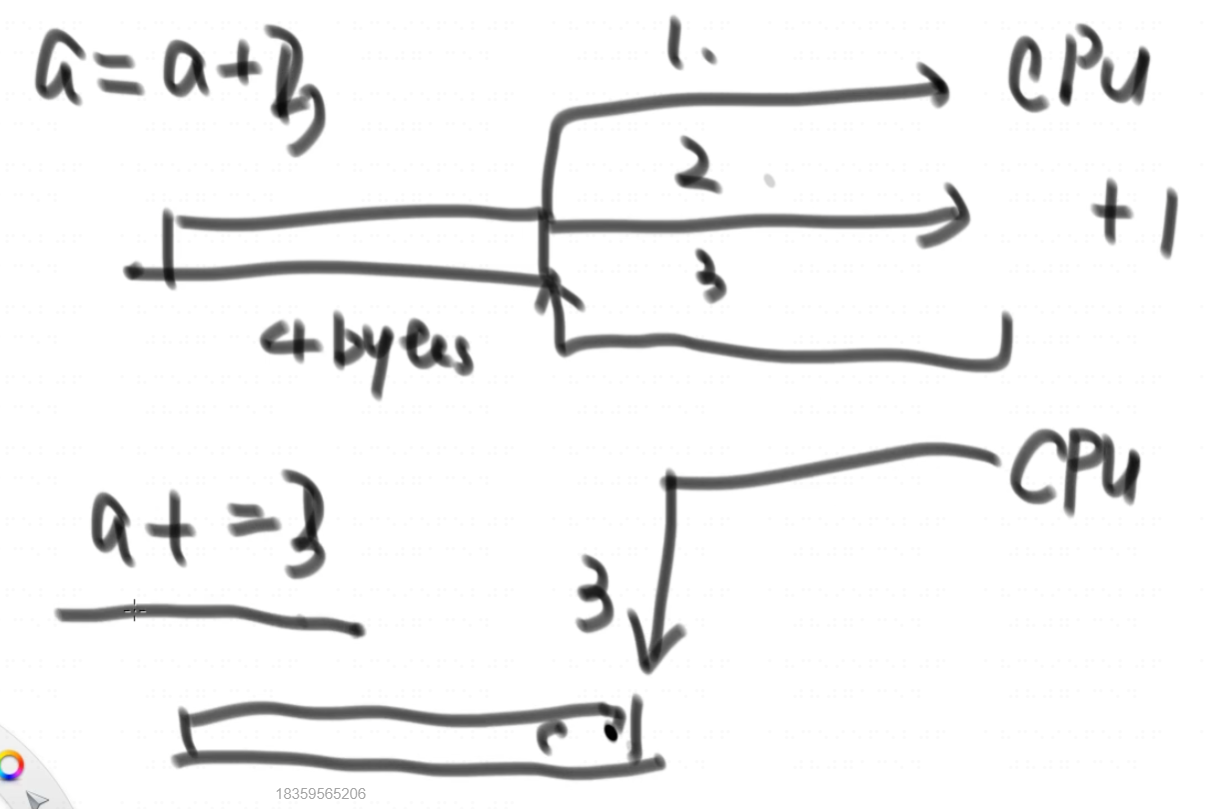 a = a + 3
1.
CPU
2
+ 1
3
4 bytes
a + = 3
CPU
3
18359565206